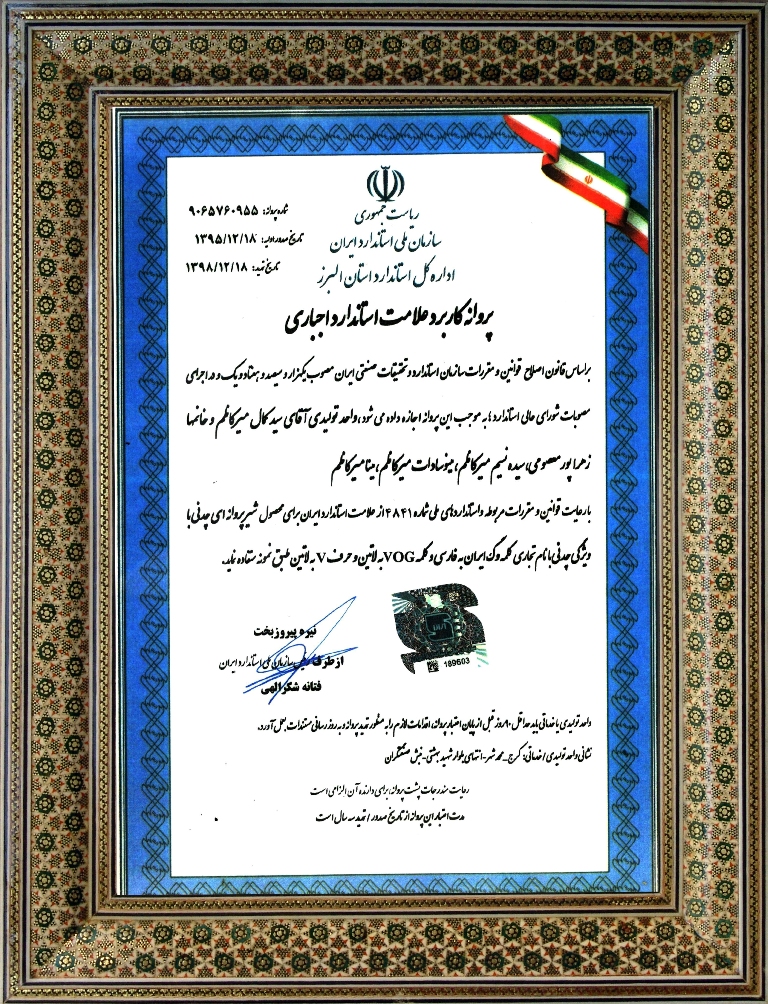 ریاست جمهوری
سازمان ملی استاندارد ایران
اداره کل استاندارد استان البرز
شماره پروانه: ۹۰۶۵۷۶۰۹۵۵
تاریخ صدور اولیه: ۱۳۹۵/۱۲/۱۸
تاریخ تمدید: ۱۳۹۸/۱۲/۱۸
پروانه کاربرد علامت استاندارد اجباری
براساس قانون اصلاح قوانین و مقررات سازمان استاندارد و تحقیقات صنعتی ایران مصوب یکهزار و سیصد و هفتاد و یک و در اجرای
مصوبات شورای عالی استاندارد، به موجب این پروانه اجازه داده می شود، واحد تولیدی آقای سید کمال میرکاظم و خانمها
زهرا پور معصومی، سیده نسیم میرکاظم، مینوسادات میرکاظم، مینا میرکاظم
با رعایت قوانین و مقررات مربوطه و استانداردهای ملی شماره ۴۸۴۱ از علامت استاندارد ایران برای محصول شیر پروانه ای چدنی با
ویژگی چدنی با نام تجاری کلمه وگ ایران به فارسی و کلمه VOG به لاتین و حرف V به لاتین طبق نمونه استفاده نماید.
189603
نیره پیروزبخت
از طرف رئیس سازمان ملی استاندارد ایران
فتانه شکرالهی
واحد تولیدی یا خدماتی باید حداقل ۹۰ روز قبل از پایان اعتبار پروانه، اقدامات لازم را به منظور تمدید پروانه و به روز رسانی مستندات بعمل آورد.
نشانی واحد تولیدی/خدماتی: کرج-محمدشهر-انتهای بلوار شهید بهشتی-نبش صنعتگران
رعایت مندرجات پشت پروانه، برای دارنده آن الزامی است
مدت اعتبار این پروانه از تاریخ صدور / تمدید سه سال است